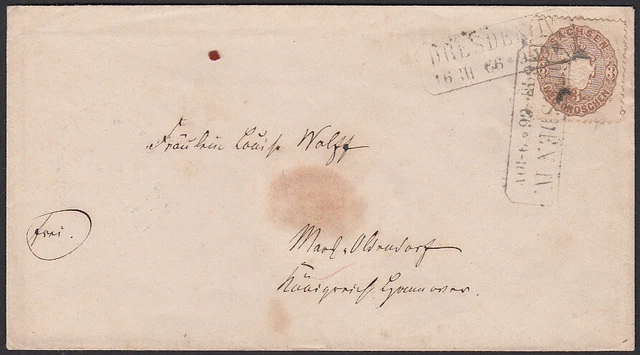 DRESDEN IV
16 III 66
SACHSEN
3
NEUGROSCHEN
DRESDEN IV.
III 66
Fräulein Louise Wolff
frei.
Mark-Oldendorf
Königreich Hannover.